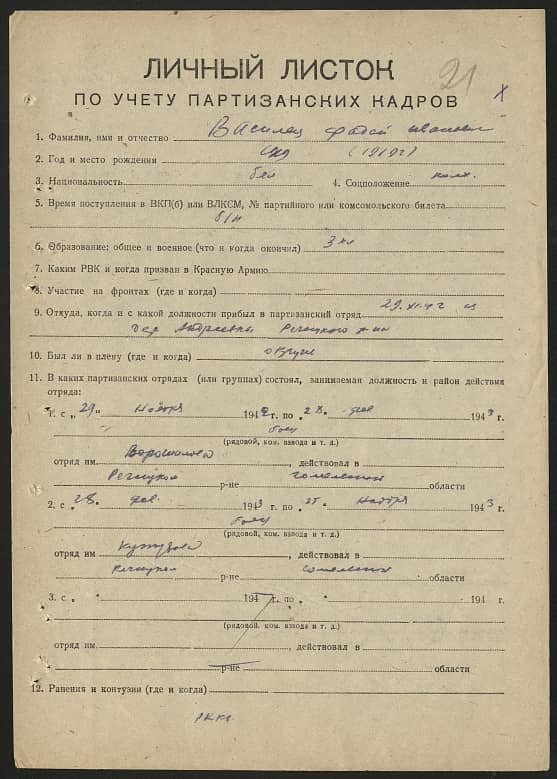 21
ЛИЧНЫЙ ЛИСТОК
ПО УЧЕТУ ПАРТИЗАНСКИХ КАДРОВ
1. Фамилия, имя и отчество Василец Фадей Иванович
2. Год и место рождения (1919г)
3. Национальность бел 4. Соцположение колх.
5. Время поступления в ВКП(б) или ВЛКСМ, № партийного или комсомольского билета
б/п
6. Образование: общее и военное (что и когда окончил) 3 кл
7. Каким РВК и когда призван в Красную Армию
8. Участие на фронтах (где и когда)
9. Откуда, когда и с какой должности прибыл в партизанский отряд 29.XI.42 из
дер Андреевка Речицкого р-на
10. Был ли в плену (где и когда)
11. В каких партизанских отрядах (или группах) состоял, занимаемая должность и район действия
отряда:
1. с „29" ноября 1942 г. по „28" фев 1943 г.
боец
(рядовой, ком. взвода и т. д.)
отряд им. Ворошилова, действовал в
Речицком р-не Гомельской области
2. с „28" фев. 1943 г. по „25" ноября 1943 г.
боец
(рядовой, ком. взвода и т. д.)
отряд им Кутузова, действовал в
Речицком р-не Гомельской области
3. с „ " 194 г. по „ " 194 г.
(рядовой, ком. взвода и т. д.)
отряд им. , действовал в
р-не области
12. Ранения и контузии (где и когда)
РККА